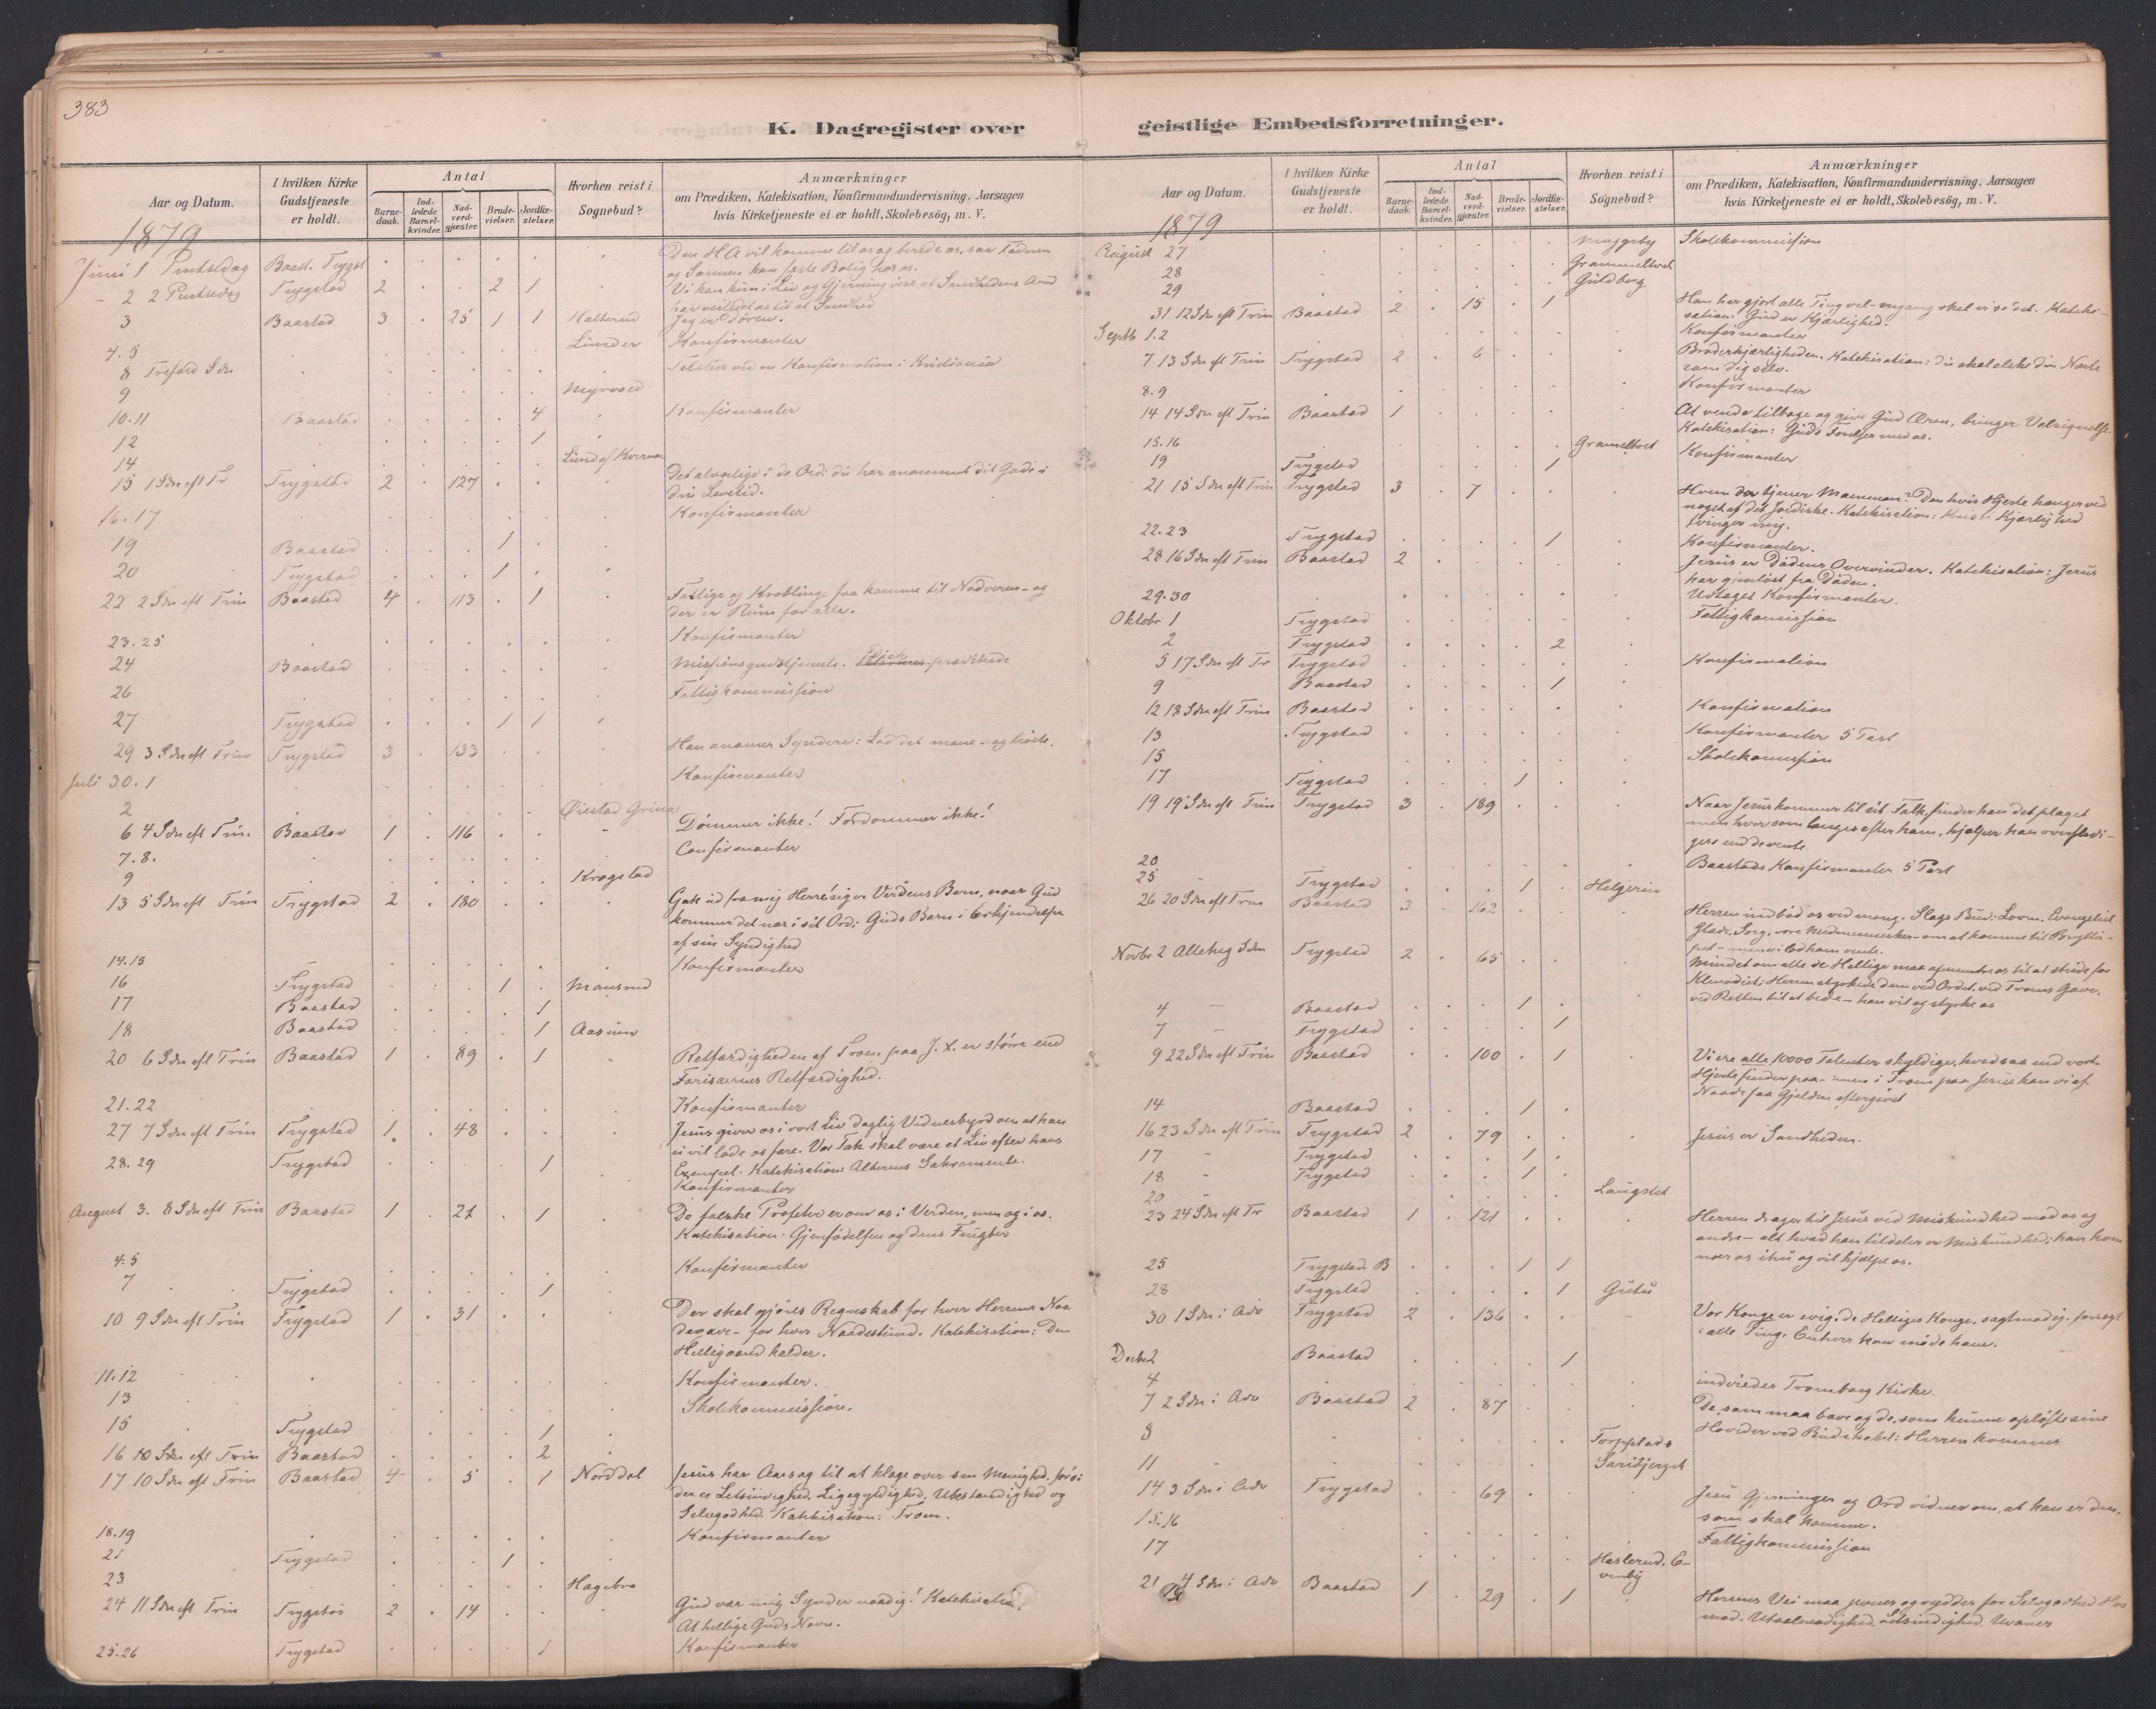 383
K. Dagregister over
Aar og Datum. I hvilken Kirke Gudstjeneste er holdt. Antal Barnedaab. Indledede Barselkvinder. Nadverdgjæster. Brudevielser. Jordfæstelser. Hvorhen reist i Sognebud? Anmærkninger om Prædiken, Katekisation, Konfirmandundervisning, Aarsagen hvis Kirketjeneste ei er holdt, Skolebesög, m. V.
1879
Juni 1 Pintsedag Baast. Trygst
og Sønnen kan fæste Bolig hos os.
- 2 2 Pintsedag Trygstad 2 . . 2 1
3 Baastad 3 . 25 1 1 Halterud Jeg er Døren.
4. 5 Lunder Konfirmanter
8 Trefold Sdn en Konfirmation i Kristiania
9 Myrvold
10. 11 Baastad 4 Konfirmanter
12 1
14 Lund af
15 1 Sdn eft Tr Trygstad 2 . 127
din Levetid.
16. 17 Konfirmanter
19 Baastad 1
20 Trygstad 1
22 2 Sdn eft Trin Baastad 4 . 113 . 1 Fattige og Krøblinge faa komme til Nadveren - og
der er Rum for alle.
23. 25 Konfirmanter
24 Baastad Missionsgudstjeneste. prædikede
26 Fattigkommission
27 Trygstad 1 1
29 3 Sdn eft Trin Trygstad 3 . 133 Han annamer Syndere: Lad det mane - og trøste.
Juli 30. 1 Konfirmanter
2 Øiestad Grina
6 4 Sdn eft Trin. Baastad 1 . 116 Dømmer ikke! Fordømmer ikke!
7. 8. Confirmanter
9 Krogstad
13 5 Sdn eft Trin Trygstad 2 . 180 Gak ud fra mig Herre! siger Verdens Barn, naar Gud
kommer det nær i sit Ord: Guds Barn i Erkjendelse
af sin Syndighed
14. 15 Konfirmanter
16 Trygstad 1 Mansrud
17 Baastad 1
18 Baastad 1 Aasum
20 6 Sdn eft Trin Baastad 1 . 89 . 1 Retfærdigheden af Troen paa J. X. er større end
Farisæernes Retfærdighed.
21. 22 Konfirmanter
27 7 Sdn eft Trin Trygstad 1 . 48 Jesus giver os i vort Liv daglig Vidnesbyrd om at han
ei vil lade os fare. Vor Tak skal være et Liv efter hans
28. 29 Trygstad 1 Exempel. Katekisation: Alterens Sakramente.
Konfirmanter
August 3. 8 Sdn eft Trin Baastad 1 . 21 . 1 De falske Profeter er om os i Verden, men og i os.
Katekisation: Gjenfødelsen og dens Frugter
4. 5 Konfirmanter
7 Trygstad 1
10 9 Sdn eft Trin Trygstad 1 . 31 Der skal gjøres Regnskab for hver Herrens Naadegave - for hver Naadestund. Katekisation: Den
Helligaand kalder.
11. 12 Konfirmanter.
13 Skolekommission.
15 Trygstad 1
16 10 Sdn eft Trin Baastad 2
17 10 Sdn eft Trin Baastad 4 . 5 . 1 Norddal Jesus har Aarsag til at klage over sin Menighed, for i
der er Letsindighed, Ligegyldighed, Ubestandighed og
Selvgodhed. Katekisation: Troen.
18. 19 Konfirmanter
21 Trygstad 1
23 Hagebro
24 11 Sdn eft Trin Trygstad 2 . 14 Gud vær mig Synder naadig! Katekisation:
At hellige Guds Navn.
25. 26 Trygstad 1 Konfirmanter
geistlige Embedsforretninger.
Aar og Datum. I hvilken Kirke Gudstjeneste er holdt. Antal Barnedaab. Indledede Barselkvinder. Nadverdgjæster. Brudevielser. Jordfæstelser. Hvorhen reist i Sognebud? Anmærkninger om Prædiken, Katekisation, Konfirmandundervisning, Aarsagen hvis Kirketjeneste ei er holdt, Skolebesög, m. V.
1879
August 27 Muggeby Skolekommission
28
29 Guldberg
31 12 Sdn eft Trin Baastad 2 . 15 . 1 Han har gjort alle Ting vel - engang skal vi se det. Katekisation: Gud er Kjærlighed.
Septb 1. 2 Konfirmanter
7 13 Sdn eft Trin Trygstad 2 . 6 Broderkjærligheden. Katekisation: du skal elske din Næste
som dig selv.
8. 9 Konfirmanter
14 14 Sdn eft Trin Baastad 1 At vende tilbage og give Gud Æren, bringer Velsignelse.
Katekisation: Guds Fædsler med os.
15. 16 Konfirmanter
19 Trygstad 1
21 15 Sdn eft Trin Trygstad 3 . 7 Hvem der tjener Mammon? Den hvis Hjerte hænger ved
noget af det Jordiske. Katekisation: Kristi Kjærlighed
tvinger mig.
22. 23 Trygstad 1 Konfirmanter.
28 16 Sdn eft Trin Baastad 2 Jesus er Dødens Overvinder. Katekisation: Jesus
har gjenløst fra Døden.
29. 30 Udtaget Konfirmanter.
Oktobr 1 Trygstad Fattigkomission
2 Trygstad 2
5 17 Sdn eft Tr Trygstad Konfirmation
9 Baastad 1
12 18 Sdn eft Trin Baastad Konfirmation
13 Trygstad Konfirmanter 5 Tart
15 Skolekomission
17 Trygstad 1
19 19 Sdn eft Trin Trygstad 3 . 189 Naar Jesus kommer til sit Folk, finder han det plaget
men hver som længes efter ham, hjælper han overflødigere end de vente
20 Baastads Konfirmanter 5 Tart
25 Trygstad 1 Helgerud
26 20 Sdn eft Trin Baastad 3 . 162 Herren indbød os ved mang. Slags Bud: Loven, Evangeliet
Glæde, Sorg, vore Medmennesker - om at komme til Bryllupet - men vi lod ham vente.
Novbr 2 Allehlg Sdn Trygstad 2 . 65 Mindet om alle de Hellige maa opmuntre os til at stride for
Klenodiet; Herren styrkede dem ved Ordet, ved Troens Gave,
ved Retten til at bede - han vil og styrke os
4 - Baastad 1
7 - Trygstad 1
9 22 Sdn eft Trin Baastad 100 . 1 Vi ere alle 10000 Talenter skyldige, hvad saa end vort
Hjerte finder paa - men i Troen paa Jesus kan vi af
Naade faa Gjelden eftergivet
14 Baastad 1
16 23 Sdn eft Trin Trygstad 2 . 79 Jesus er Sandheden.
17 - Trygstad 1
18 - Trygstad 1
20 - Langset
23 24 Sdn eft Tr Baastad 1 . 121 Herren drager til Jesus ved Miskundhed mod os og
andre - alt hvad han tildeler er Miskundhed; han kom
nær os ihu og vil hjælpe os.
25 Trygstad B 1 1
28 Trygstad 1 Gutu
30 1 Sdn i Adv Trygstad 2 . 136 Vor Konge er evig, de Helliges Konge, sagtmodig, forsøgt
i alle Ting. Enhver kan møde ham.
Decbr 2 Baastad 1
4 indviedes Tromborg Kirke
7 2 Sdn i Adv Baastad 2 . 87 De, som maa bæve og de, som kunne opløfte sine
Hoveder ved Budskabet: Herren kommer
8
11
14 3 Sdn i Adv Trygstad 69 Jesu Gjerninger og Ord vidner om, at han er den,
som skal komme.
15. 16
17 Fattigkommission
Haslerud.
21 4 Sdn i Adv Baastad 1 . 29 . 1 Herrens Vei maa jevnes og ryddes for Selvgodhed
mod, Utaalmodighed, Letsindighed, Uvaner